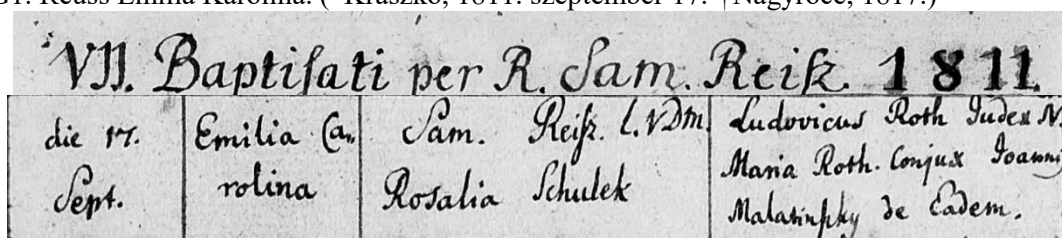 Reuss Emma Karolina. (* Kraszkó, 1811. szeptember 17. †Nagyrőce, 1817.)
VII. Baptisati per R. Sam. Reisz. 1811.
die 17. Sept.
Emilia Carolina
Sam. Reisz. l. VDM
Rosalia Schulek
Ludovicus Roth Judex N.
Maria Roth. Conjux Joannis
Malatinszky de Eadem.